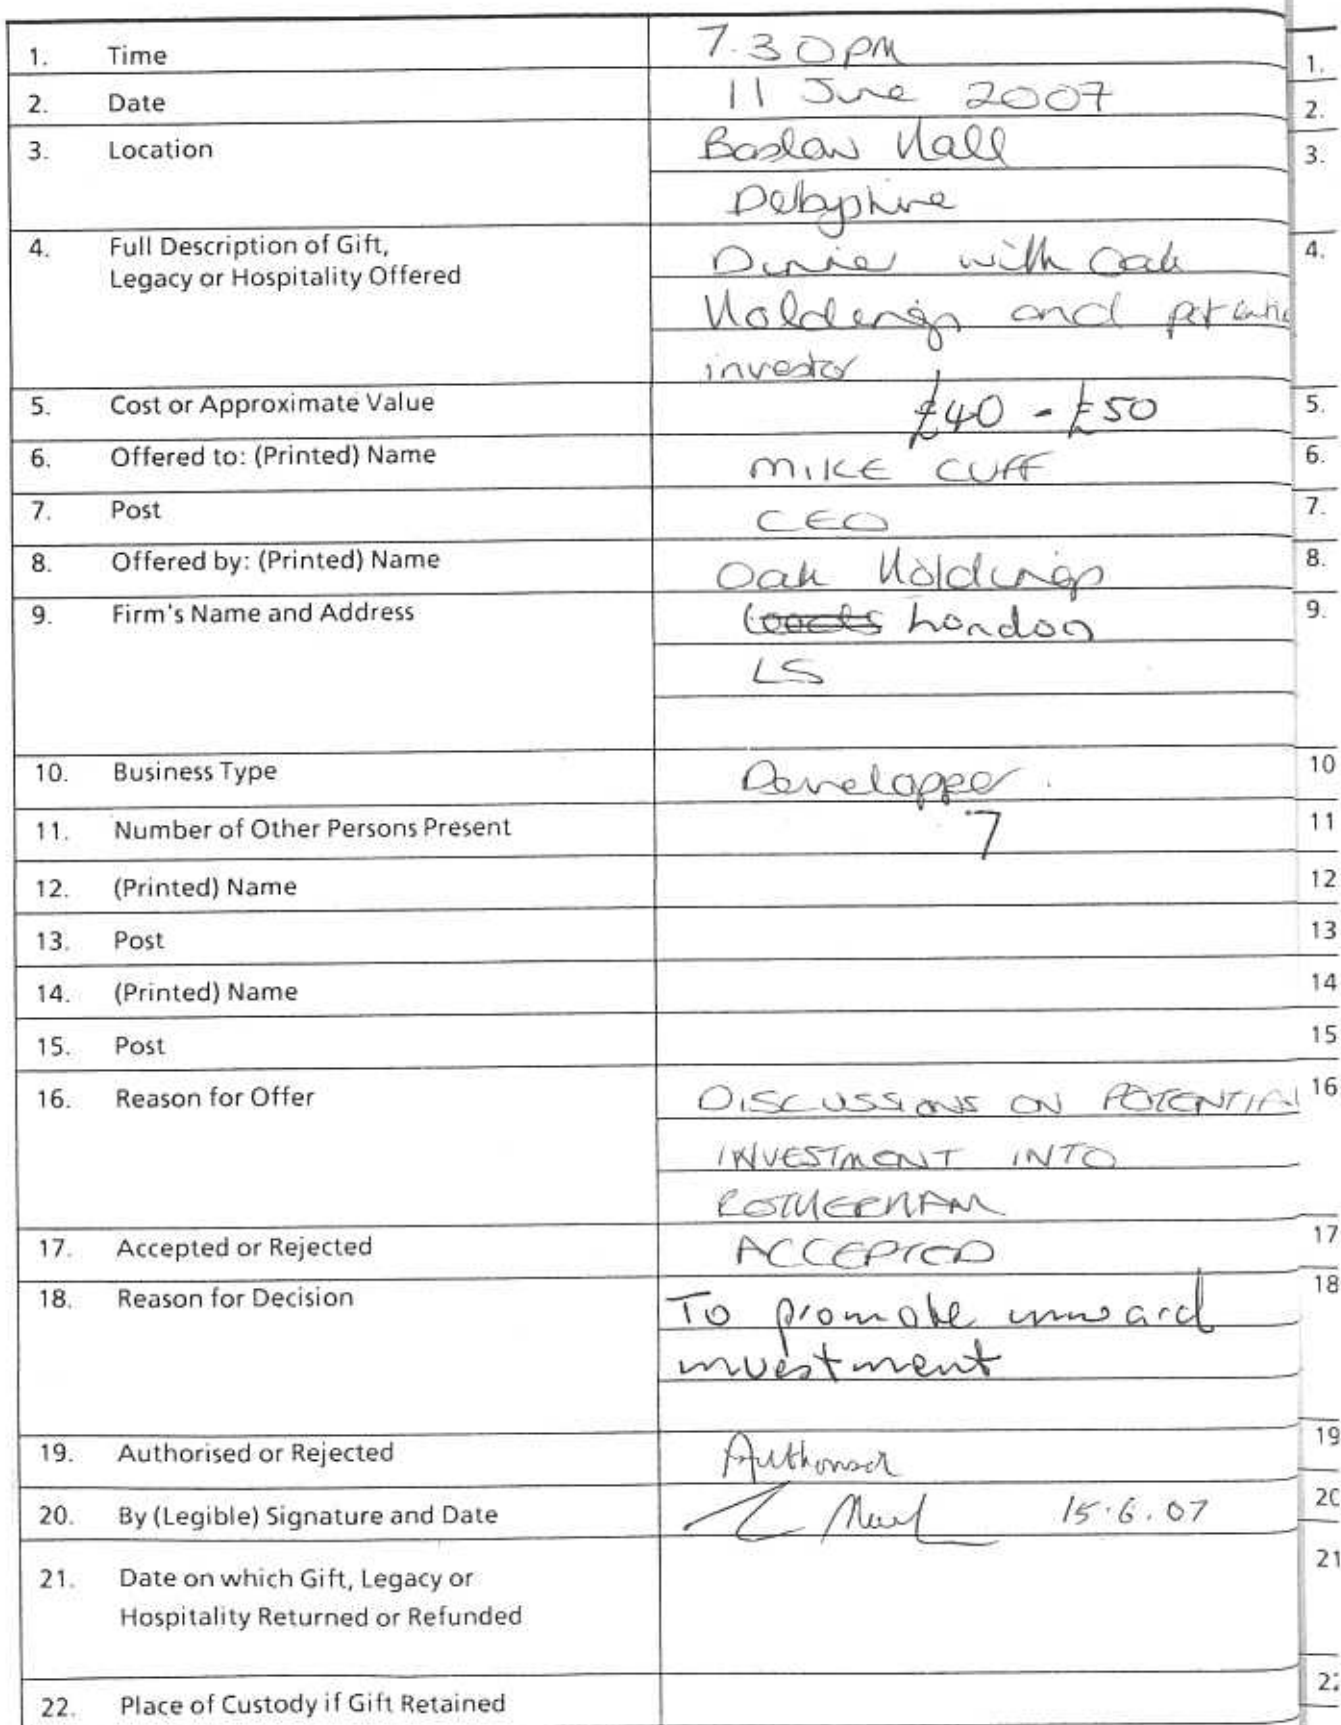 1. Time 7.30pm
1.
2. Date 11 June 2007
2.
3. Location Baslow Hall
3.
Derbyshire
4. Full Description of Gift, Dinner with Oak
4.
Legacy or Hospitality Offered
Holdings and potentia
investor
5. Cost or Approximate Value £40 - £50
5.
6. Offered to: (Printed) Name MIKE CUFF
6.
7. Post CEO
7.
8. Offered by: (Printed) Name Oak Holdings
8.
9. Firm's Name and Address Leeds London
9.
LS
10. Business Type Developer.
10
11. Number of Other Persons Present 7
11
12. (Printed) Name
12
13. Post
13
14. (Printed) Name
14
15. Post
15
16. Reason for Offer DISCUSSIONS ON POTENTIAL
16
INVESTMENT INTO
ROTHERHAM
17. Accepted or Rejected ACCEPTED
17
18. Reason for Decision To promote inward
18
investment
19. Authorised or Rejected Authorised
19
20. By (Legible) Signature and Date 15.6.07
20
21. Date on which Gift, Legacy or
21
Hospitality Returned or Refunded
22. Place of Custody if Gift Retained
22